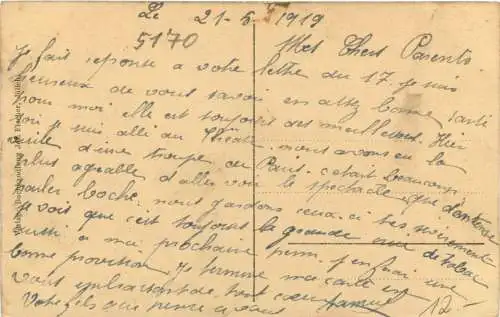 Le 21-5 1919
5170
Mes Chers Parents
Je fait reponse a votre lettre du 17. Je suis
heureux de vous savoir en assez bonne santé
pour moi elle est toujours des meilleures. Hier
soir je suis allé au théâtre nous avons eu la
visite d'une troupe de Paris c'etait beaucoup
plus agreable d'aller voir le spectacle que d'entendre
parler boche. nous gardons ceux-ci tres
Je vois que c'est toujours la grande de tabac
aussi a ma prochaine perm. j'en ferai une
bonne provision. Je termine ma carte en
vous embrassant de tout coeur
Votre fils qui pense a vous
12.-